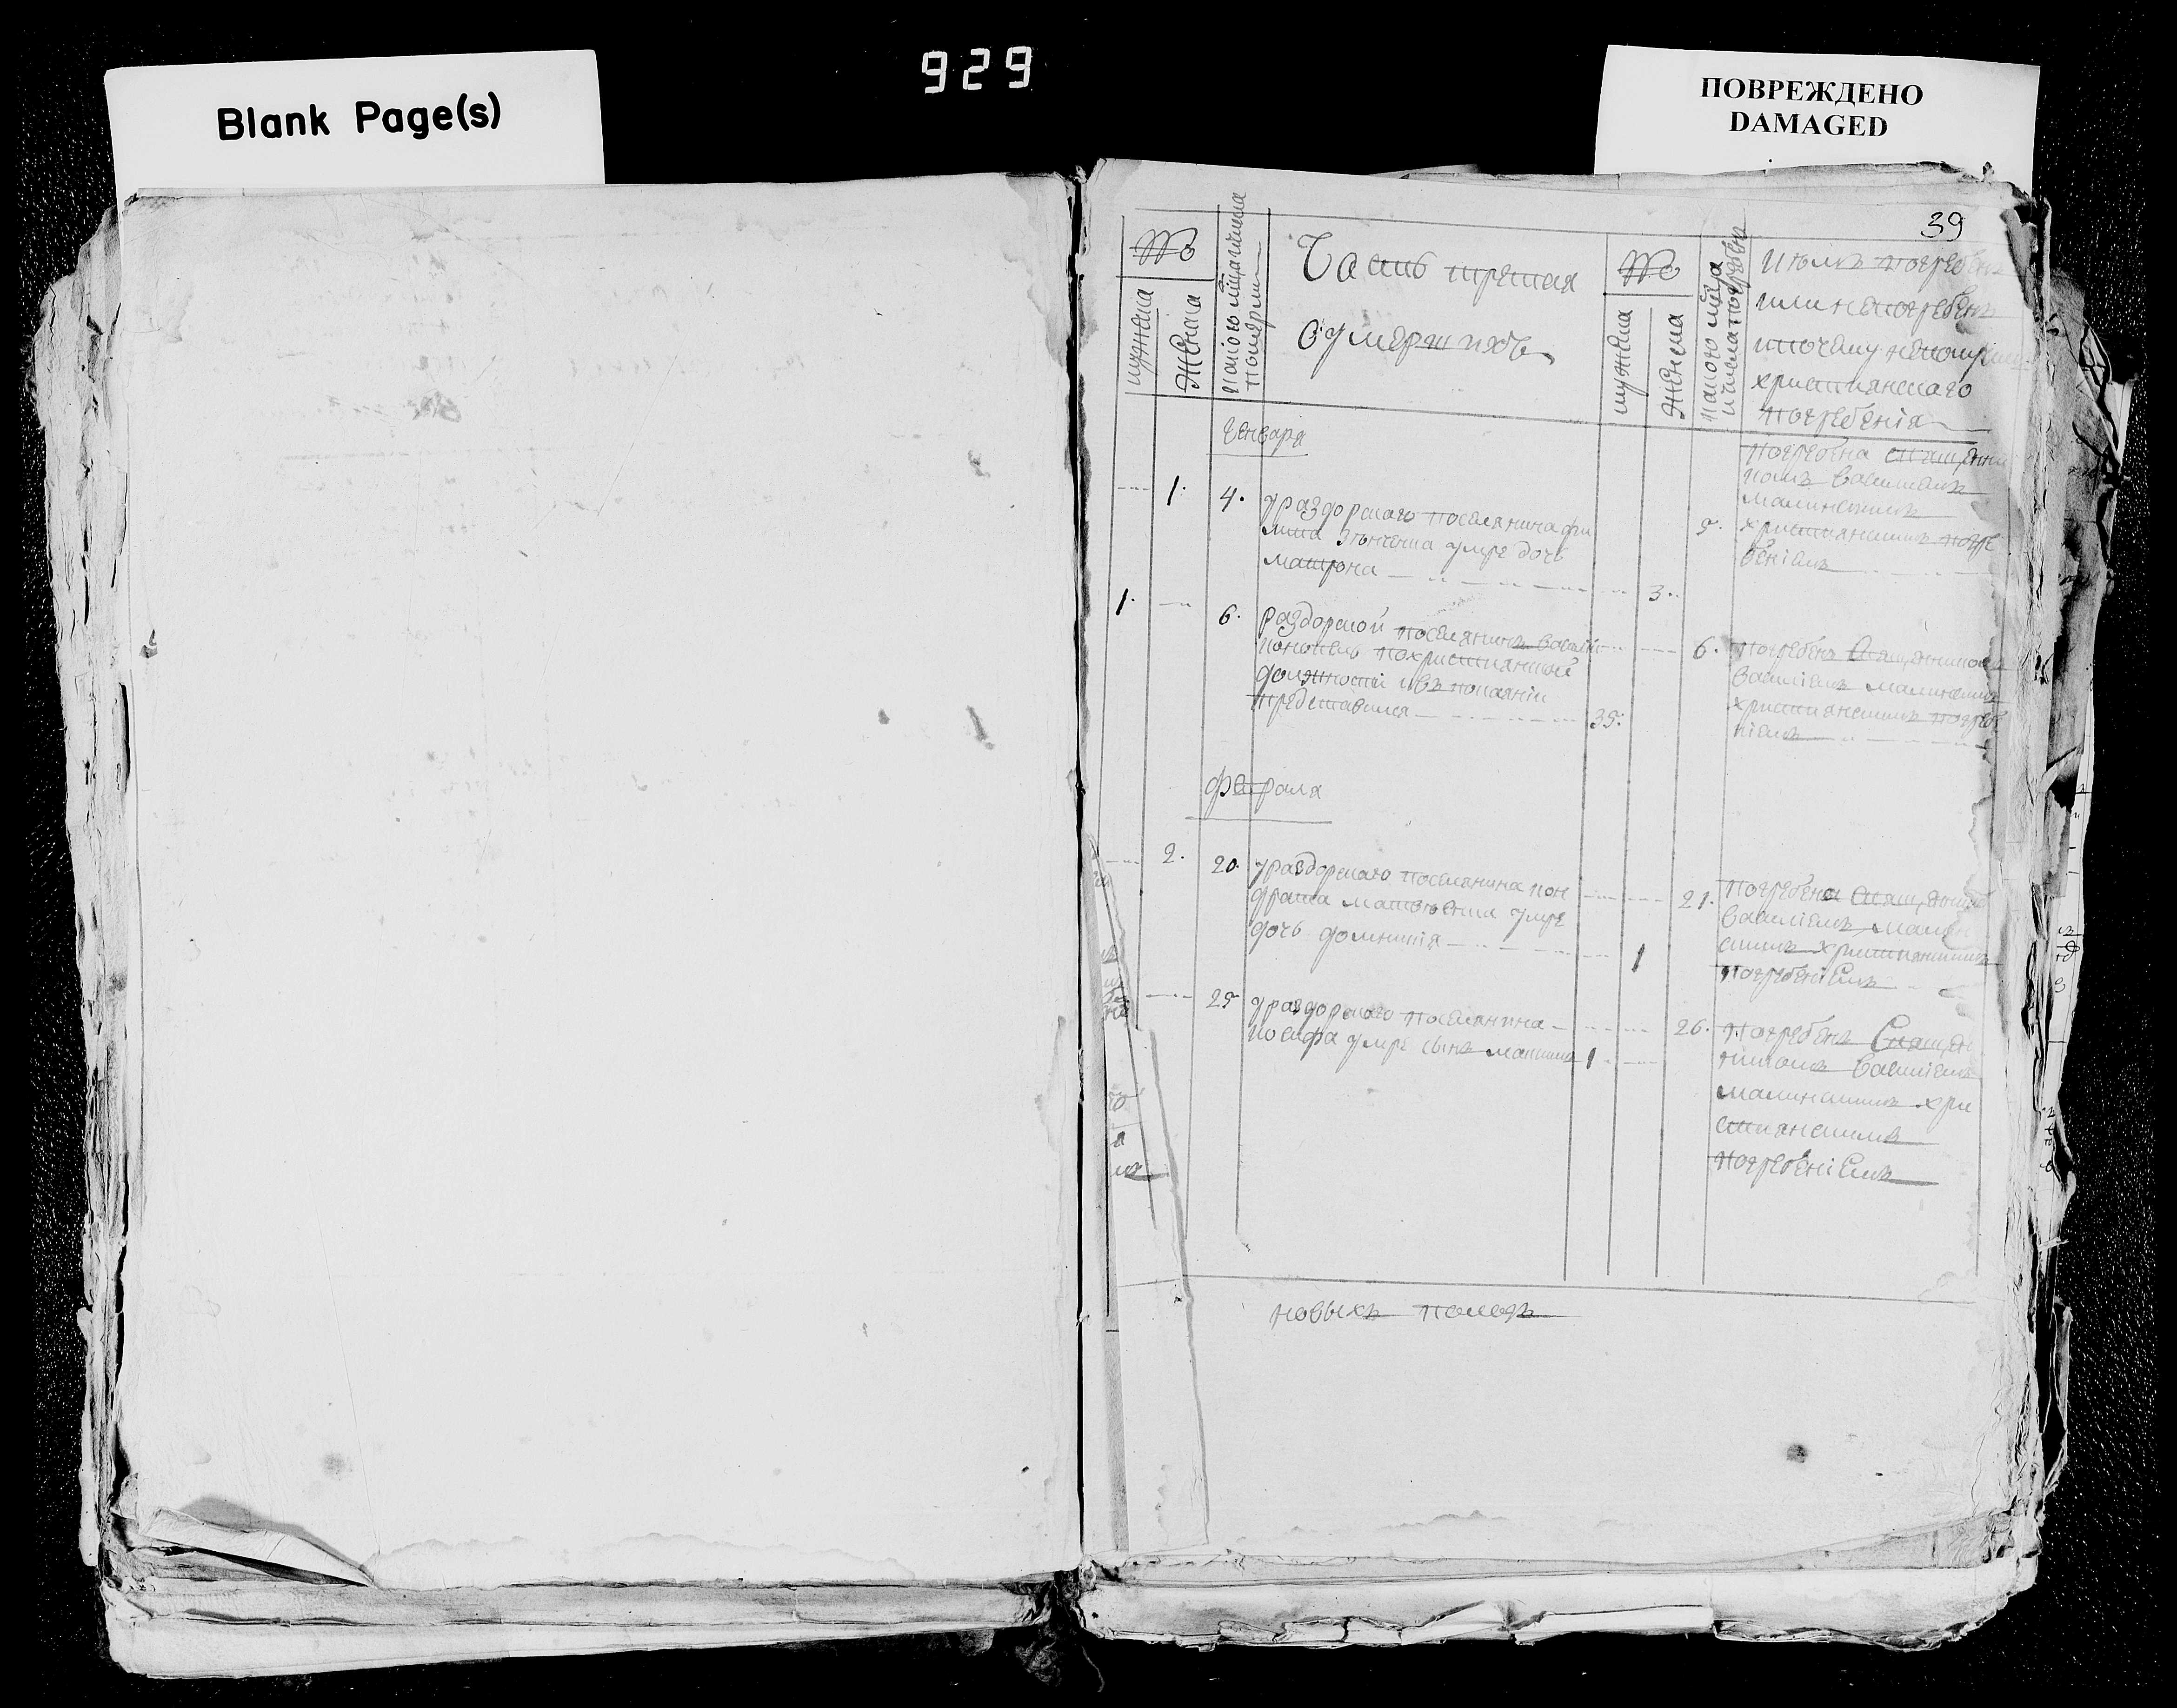 929
Blank Page(s)
ПОВРЕЖДЕНО
DAMAGED
39
№
мужеска
Женска
Часть третая
О умершихъ
№
мужеска
женска
и кемъ погребенъ
или непогребенъ
и почему неполучил
христианскаго
погребения
Генваря
1.
4.
У раздорскаго поселянина фи
липа умре дочь
матрона
3.
5.
Погребена священни
комъ василиемъ
малинскимъ
христианскимъ погре
бениемъ
1.
6.
Раздорской поселянинъ василий
похристианской
должности и въ покаянии
представился
35.
6.
погребенъ священникомъ
василиемъ малинскимъ
христианскимъ погребе
ниемъ
февраля
2.
20.
У раздорскаго поселянина кон
драта матвѣенка умре
дочь домникия
1
21.
погребена священником
василиемъ малин
скимъ христианскимъ
погребениемъ
25
У раздорскаго поселянина
иосифа умре сынъ максимъ
1
26.
погребенъ Священ
никомъ василиемъ
малинскимъ хри
стианскимъ
погребениемъ
новыхъ